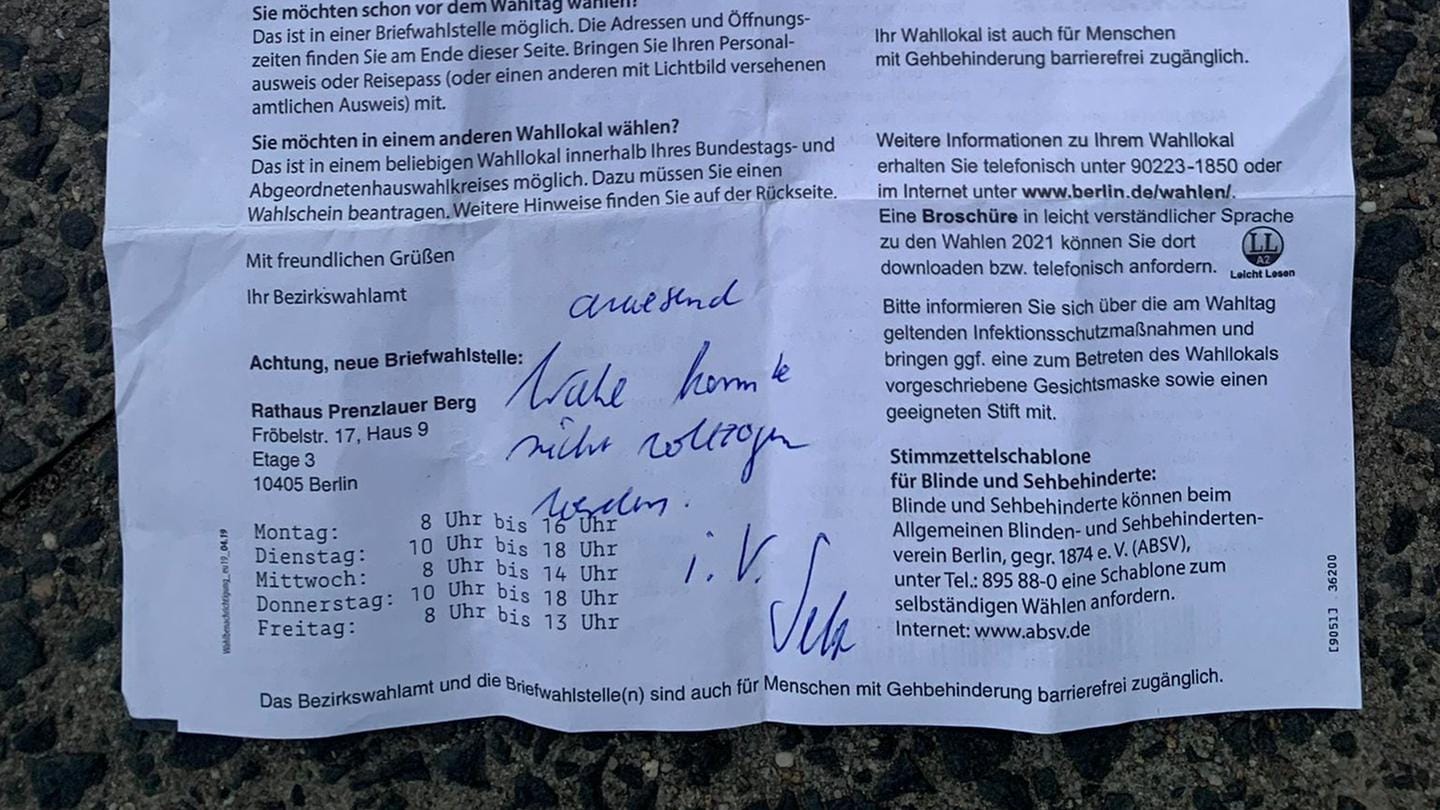 Sie möchten schon vor dem Wahltag wählen?
Das ist in einer Briefwahlstelle möglich. Die Adressen und Öffnungs-
zeiten finden Sie am Ende dieser Seite. Bringen Sie Ihren Personal-
ausweis oder Reisepass (oder einen anderen mit Lichtbild versehenen
amtlichen Ausweis) mit.
Sie möchten in einem anderen Wahllokal wählen?
Das ist in einem beliebigen Wahllokal innerhalb Ihres Bundestags- und
Abgeordnetenhauswahlkreises möglich. Dazu müssen Sie einen
Wahlschein beantragen. Weitere Hinweise finden Sie auf der Rückseite.
Mit freundlichen Grüßen
Ihr Bezirkswahlamt
Achtung, neue Briefwahlstelle:
Rathaus Prenzlauer Berg
Fröbelstr. 17, Haus 9
Etage 3
10405 Berlin
Montag: 8 Uhr bis 16 Uhr
Dienstag: 10 Uhr bis 18 Uhr
Mittwoch: 8 Uhr bis 14 Uhr
Donnerstag: 10 Uhr bis 18 Uhr
Freitag: 8 Uhr bis 13 Uhr
anwesend
Wahl konnte
nicht vollzogen
werden.
i.V.
Ihr Wahllokal ist auch für Menschen
mit Gehbehinderung barrierefrei zugänglich.
Weitere Informationen zu Ihrem Wahllokal
erhalten Sie telefonisch unter 90223-1850 oder
im Internet unter www.berlin.de/wahlen/.
Eine Broschüre in leicht verständlicher Sprache
zu den Wahlen 2021 können Sie dort
downloaden bzw. telefonisch anfordern.
LL
A2
Leicht Lesen
Bitte informieren Sie sich über die am Wahltag
geltenden Infektionsschutzmaßnahmen und
bringen ggf. eine zum Betreten des Wahllokals
vorgeschriebene Gesichtsmaske sowie einen
geeigneten Stift mit.
Stimmzettelschablone
für Blinde und Sehbehinderte:
Blinde und Sehbehinderte können beim
Allgemeinen Blinden- und Sehbehinderten-
verein Berlin, gegr. 1874 e. V. (ABSV),
unter Tel.: 895 88-0 eine Schablone zum
selbständigen Wählen anfordern.
Internet: www.absv.de
[9051] 36200
Das Bezirkswahlamt und die Briefwahlstelle(n) sind auch für Menschen mit Gehbehinderung barrierefrei zugänglich.